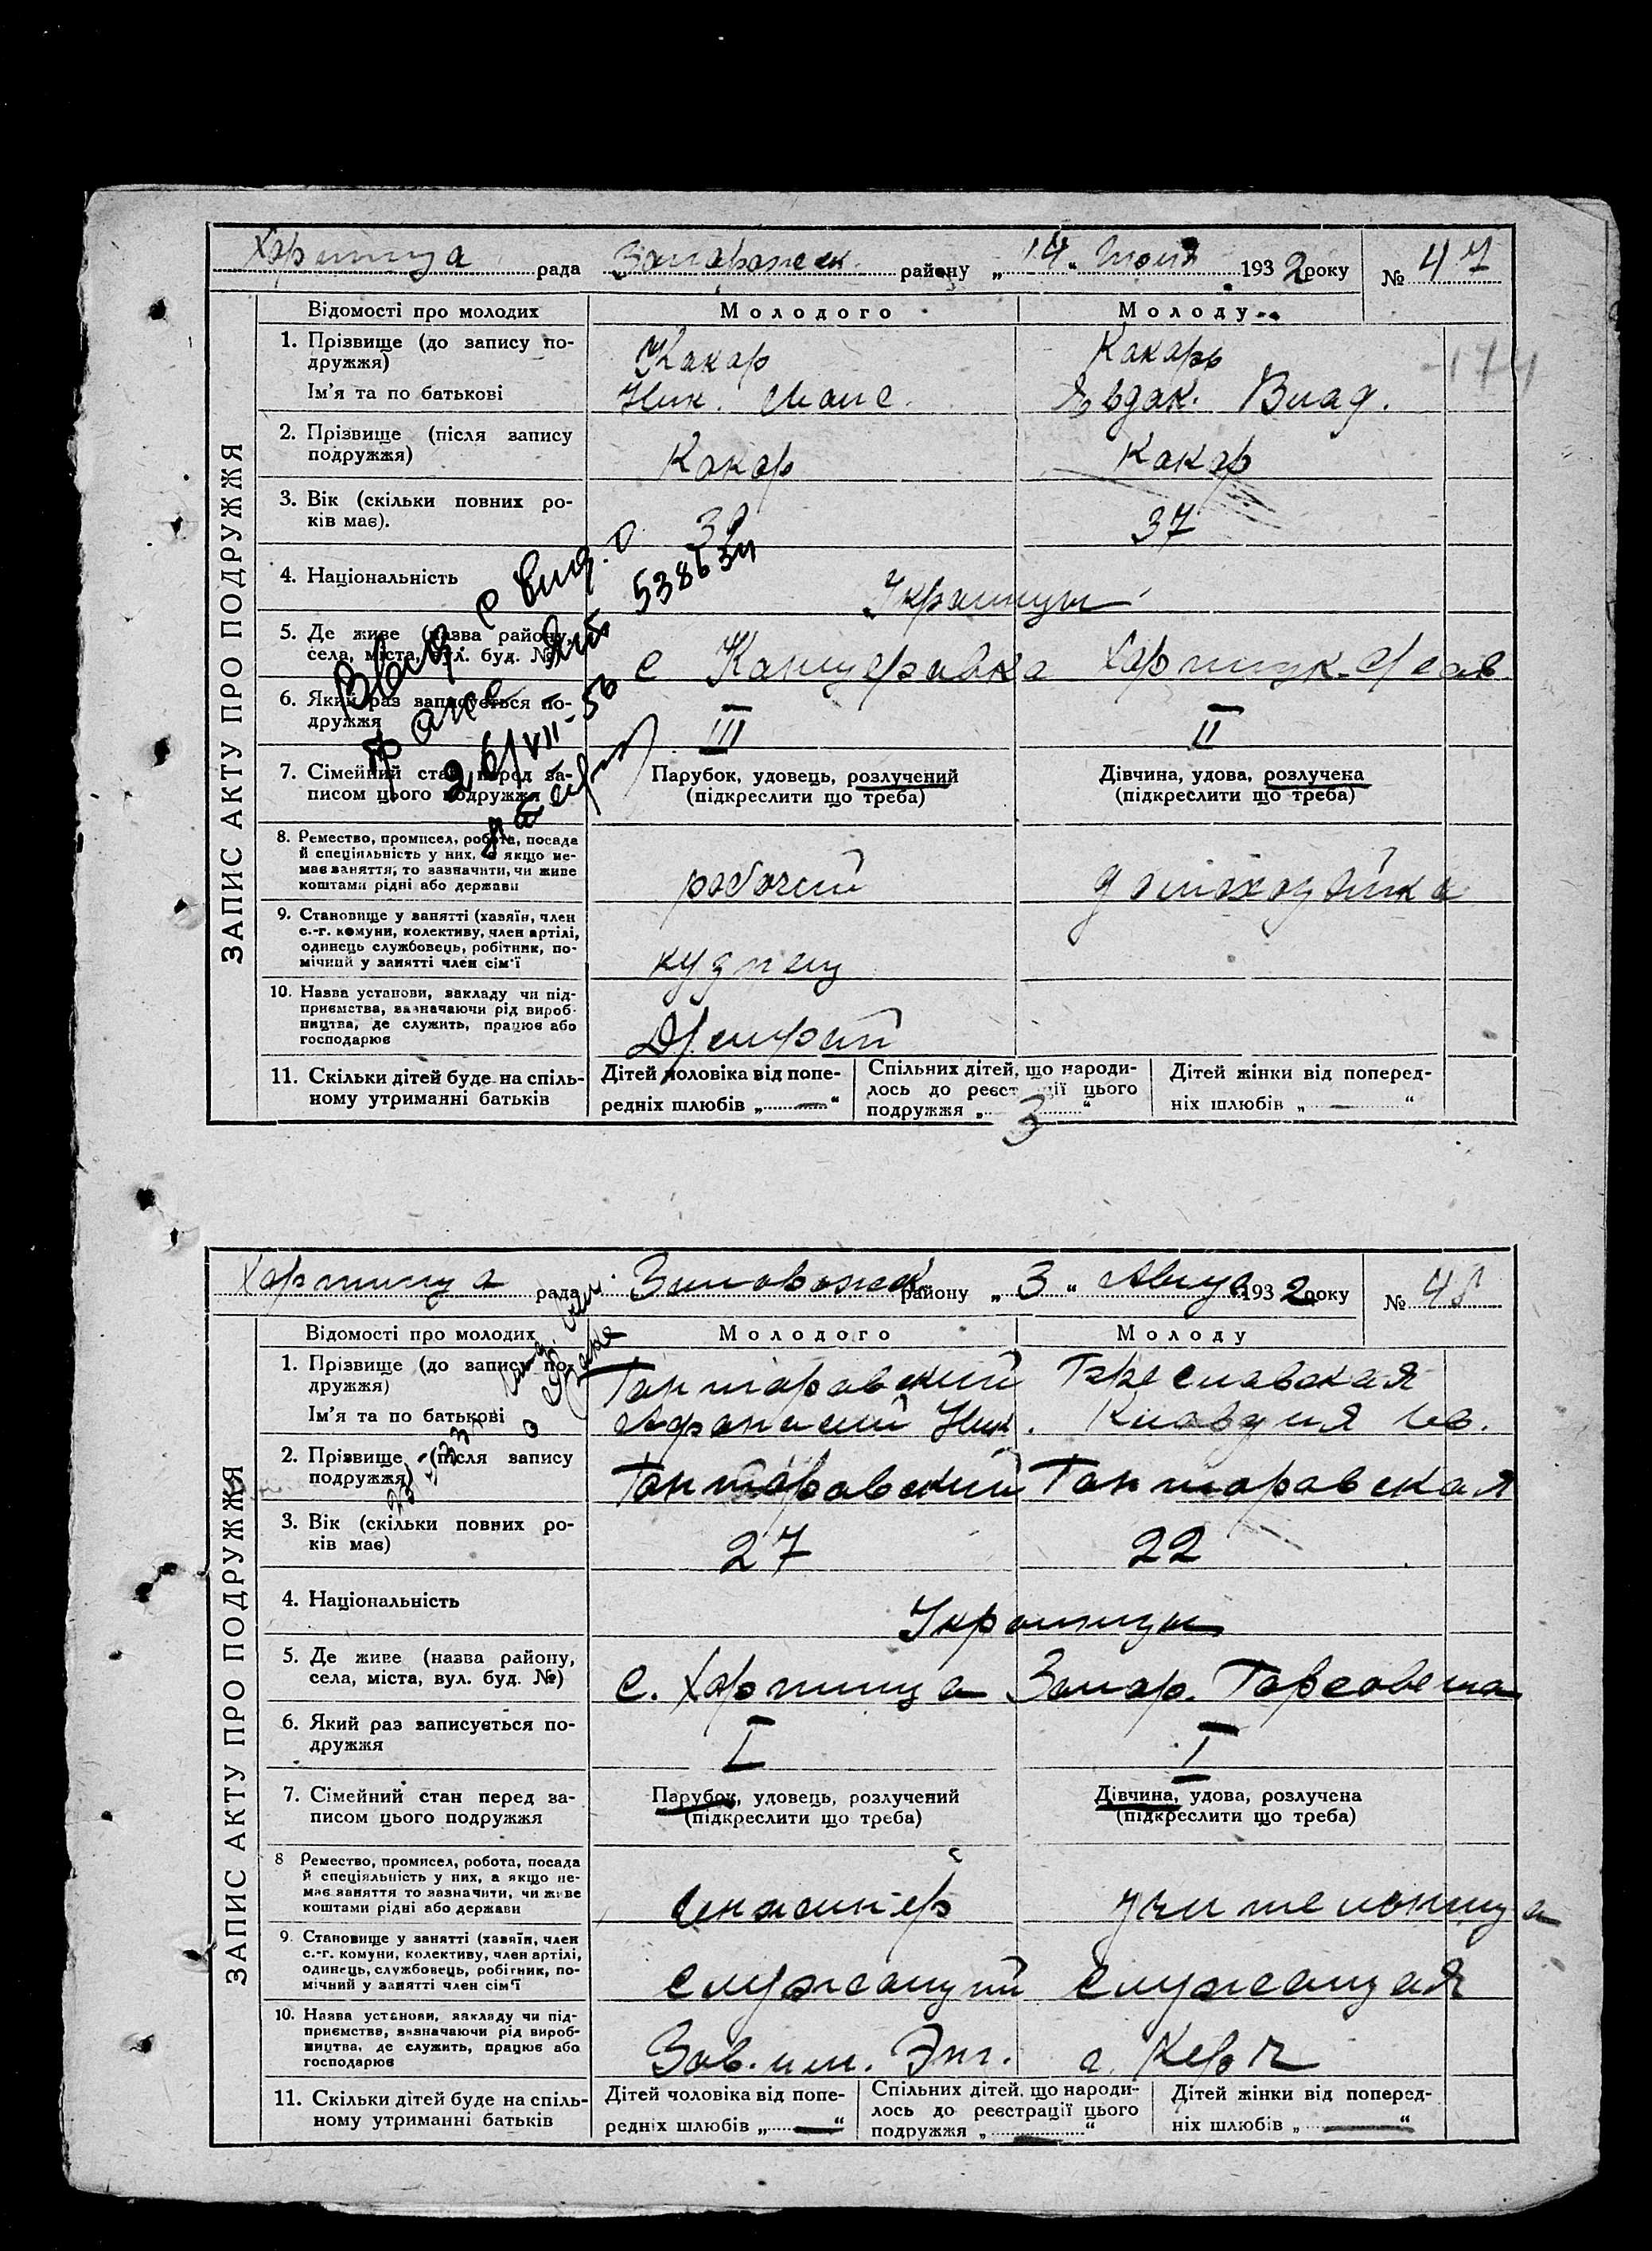 Хортица рада Запорожск. району „14“ Июля 1932 року № 47
ЗАПИС АКТУ ПРО ПОДРУЖЖЯ
Відомості про молодих Молодого Молоду
1. Прізвище (до запису по-
дружжя) Какар Какарь
174
Ім'я та по батькові Ник. Явдак. Влад.
2. Прізвище (після запису
подружжя) Какар Какар
3. Вік (скільки повних ро-
ків має). 39 37
4. Національність Украинцы
5. Де живе (назва району,
села, міста, вул. буд. №) с Канцеровка Хортицк.
6. Який раз записується по-
дружжя III II
7. Сімейний стан перед за-
писом цього подружжя
Парубок, удовець, розлучений
(підкреслити що треба)
Дівчина, удова, розлучена
(підкреслити що треба)
8. Ремество, промисел, робота, посада
й спеціяльність у них, а якщо не-
має заняття, то зазначити, чи живе
коштами рідні або держави
рабочий домохозяйка
9. Становище у занятті (хазяїн, член
с.-г. комуни, колективу, член артілі,
одинець службовець, робітник, по-
мічний у занятті член сім'ї
кузнец
10. Назва установи, закладу чи під-
приємства, зазначаючи рід вироб-
ництва, де служить, працює або
господарює
11. Скільки дітей буде на спіль-
ному утриманні батьків
Дітей чоловіка від попе-
редніх шлюбів „ — “
Спільних дітей, що народи-
лось до реєстрації цього
подружжя „ 3 “
Дітей жінки від поперед-
ніх шлюбів „ — “
Выд. свид. о
браке 538634
26/VII-56
Хортица рада Запорожск району „3“ Авгус 1932 року № 48
ЗАПИС АКТУ ПРО ПОДРУЖЖЯ
Відомості про молодих Молодого Молоду
1. Прізвище (до запису по-
дружжя) Гонторовский
Ім'я та по батькові Афанасий Ник. Клавдия Ив.
2. Прізвище (після запису
подружжя) Гонторовский Гонторовская
3. Вік (скільки повних ро-
ків має) 27 22
4. Національність Украинцы
5. Де живе (назва району,
села, міста, вул. буд. №) с. Хортица Запор. Горсовета
6. Який раз записується по-
дружжя I I
7. Сімейний стан перед за-
писом цього подружжя
Парубок, удовець, розлучений
(підкреслити що треба)
Дівчина, удова, розлучена
(підкреслити що треба)
8 Ремество, промисел, робота, посада
й спеціяльність у них, а якщо не-
має заняття то зазначити, чи живе
коштами рідні або держави
Инженер учительница
9. Становище у занятті (хазяїн, член
с.-г. комуни, колективу, член артілі,
одинець, службовець, робітник, по-
мічний у занятті член сім'ї
служащий служащая
10. Назва установи, закладу чи під-
приємства, зазначаючи рід вироб-
ництва, де служить, працює або
господарює
Зав. им. Энг. г. Керч
11. Скільки дітей буде на спіль-
ному утриманні батьків
Дітей чоловіка від попе-
редніх шлюбів „ — “
Спільних дітей, що народи-
лось до реєстрації цього
подружжя „ — “
Дітей жінки від поперед-
ніх шлюбів „ — “